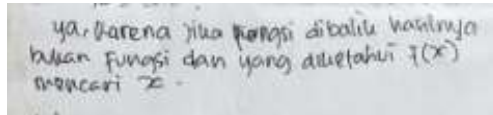 ya, karena jika fungsi dibalik hasilnya
bukan fungsi dan yang diketahui f(x)
mencari x.